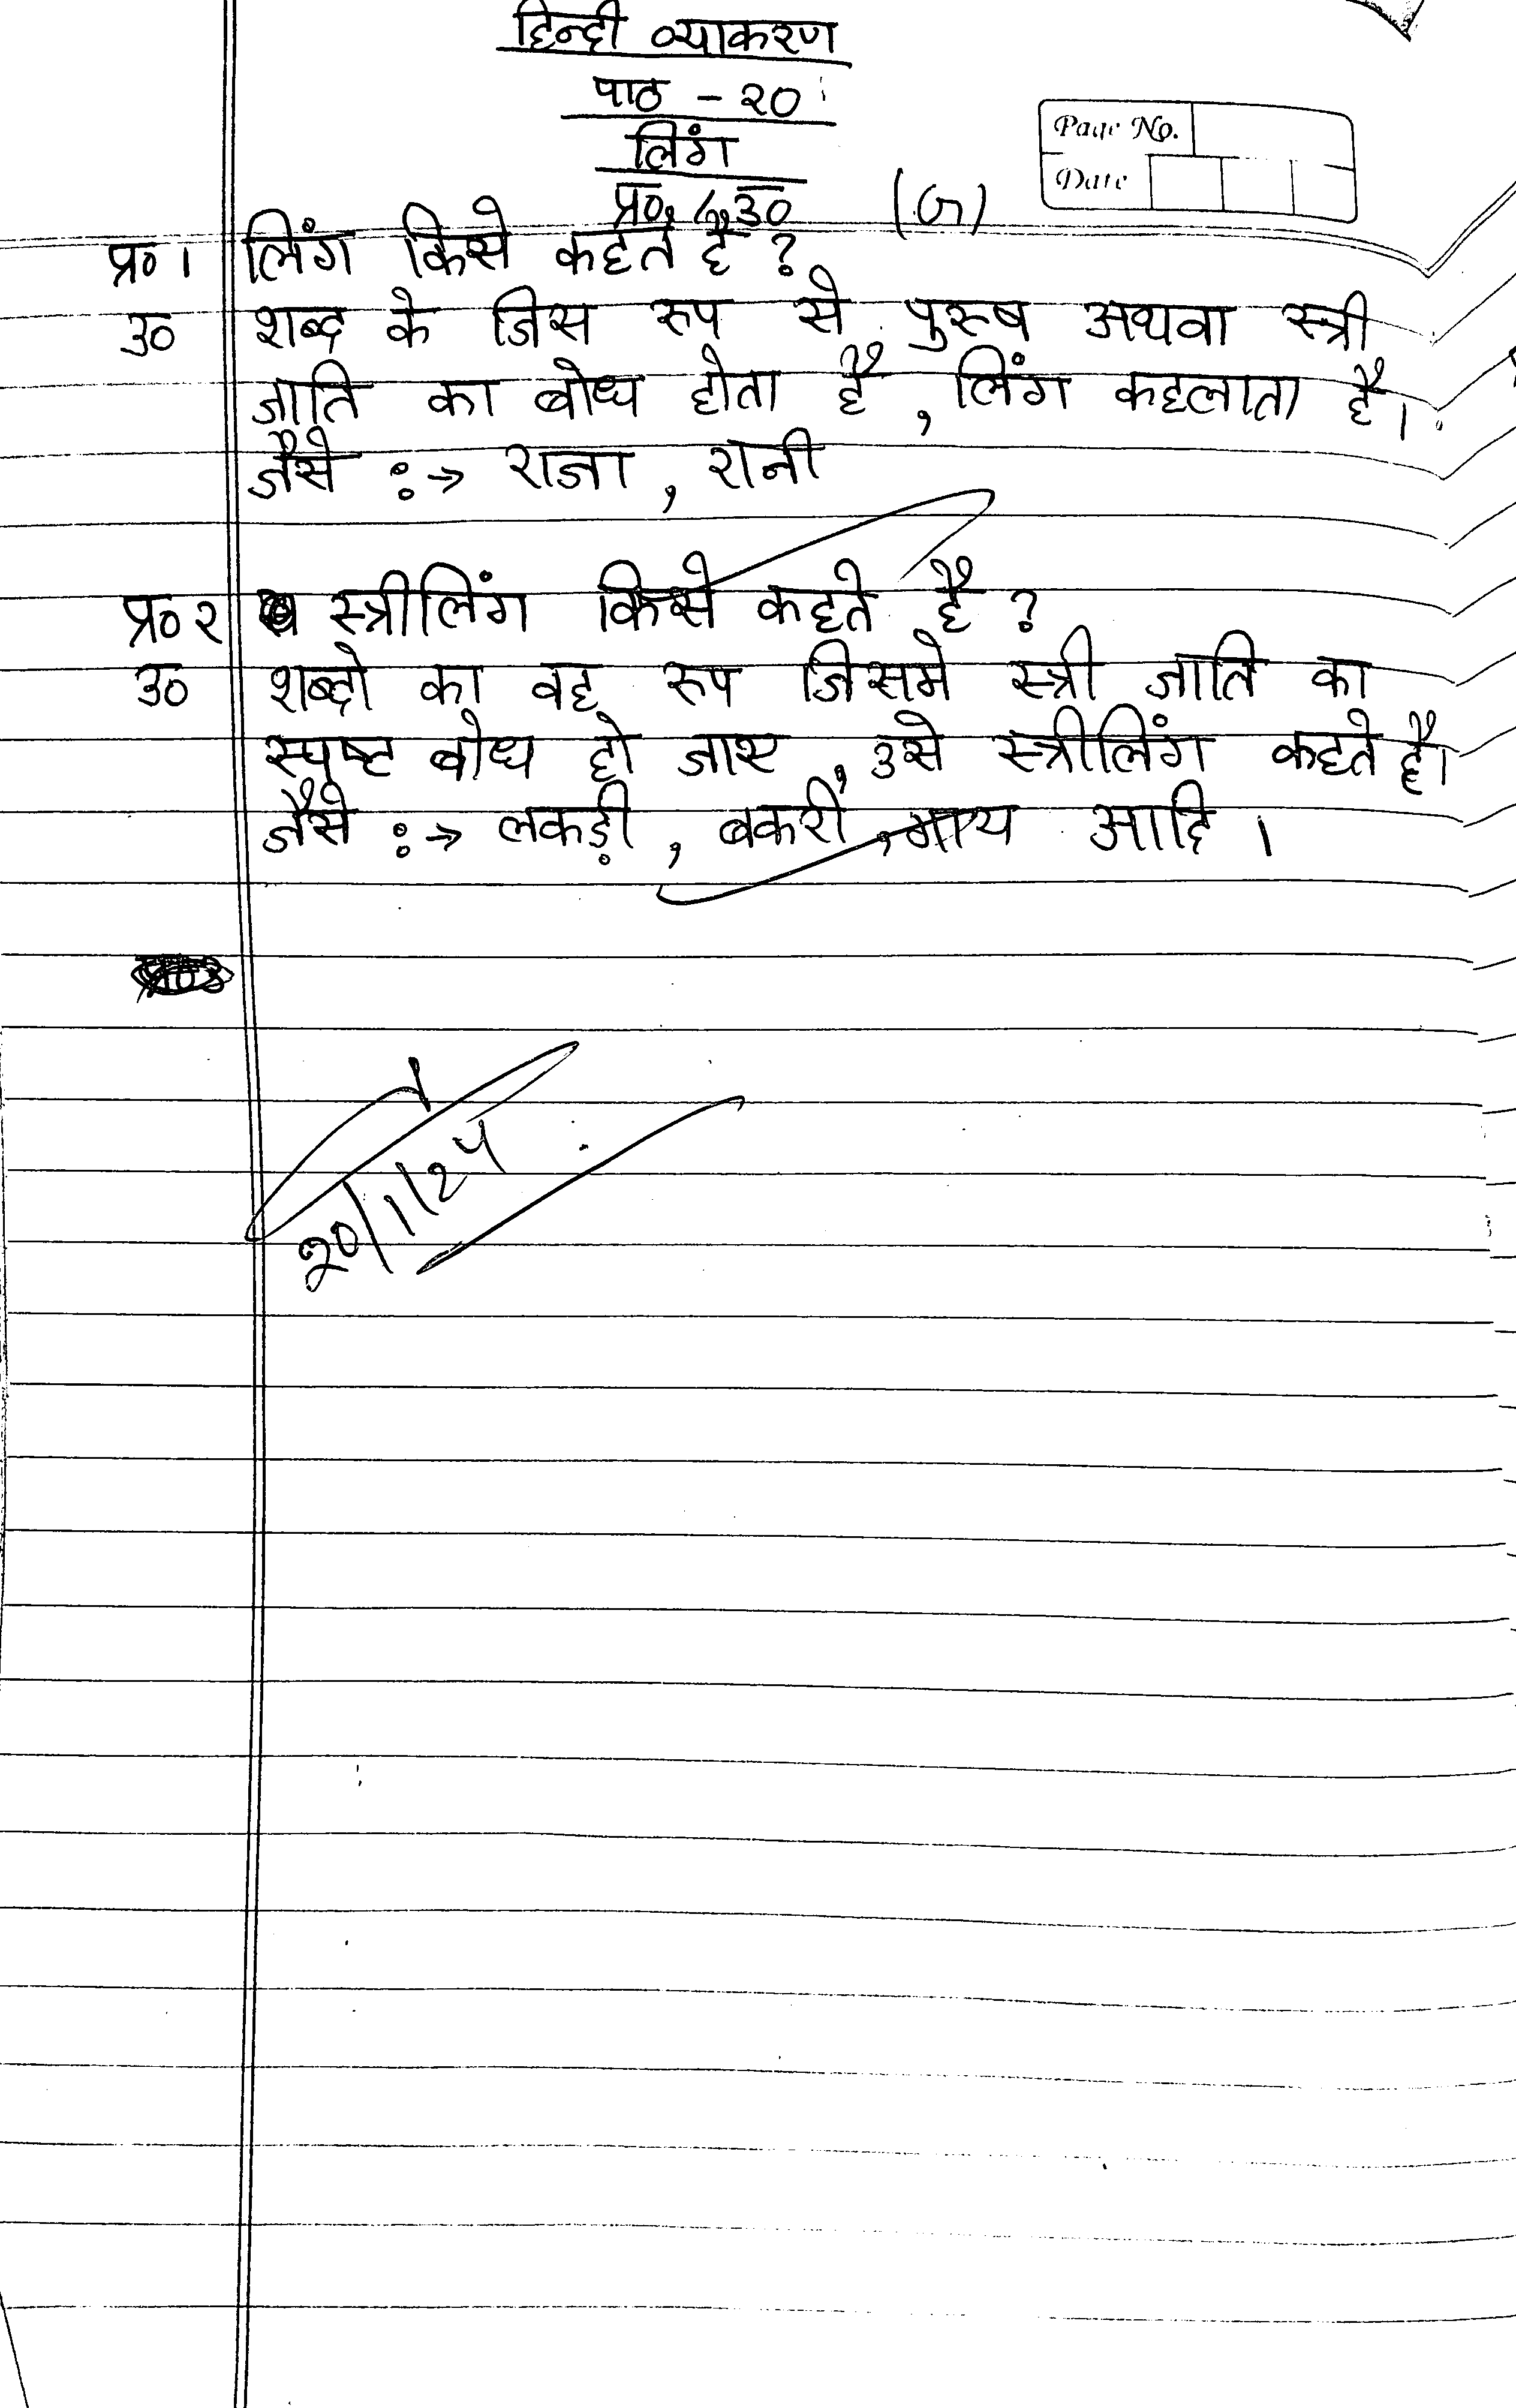 हिन्दी व्याकरण
पाठ - २०
लिंग
Page No.
Date
प्र०, उ०
प्र० १ लिंग किसे कहते है ?
उ० शब्द के जिस रुप से पुरुष अथवा स्त्री
जाति का बोध होता है , लिंग कहलाता है।
जैसे :→ राजा , रानी
प्र० २ स्त्रीलिंग किसे कहते है ?
उ० शब्दो का वह रुप जिसमे स्त्री जाति का
स्पष्ट बोध हो जाए , उसे स्त्रीलिंग कहते है।
जैसे :→ लकड़ी , बकरी , गाय आदि ।
20/1/24